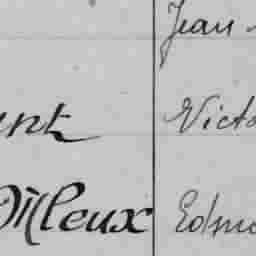 Jean
ent Victo
Dilleux Edmo